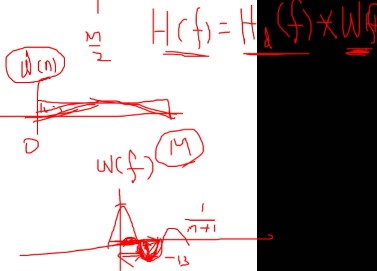 M/2
H(f) = H_d(f) * W(f)
W(n)
0
W(f) M
1/(M+1)
-13